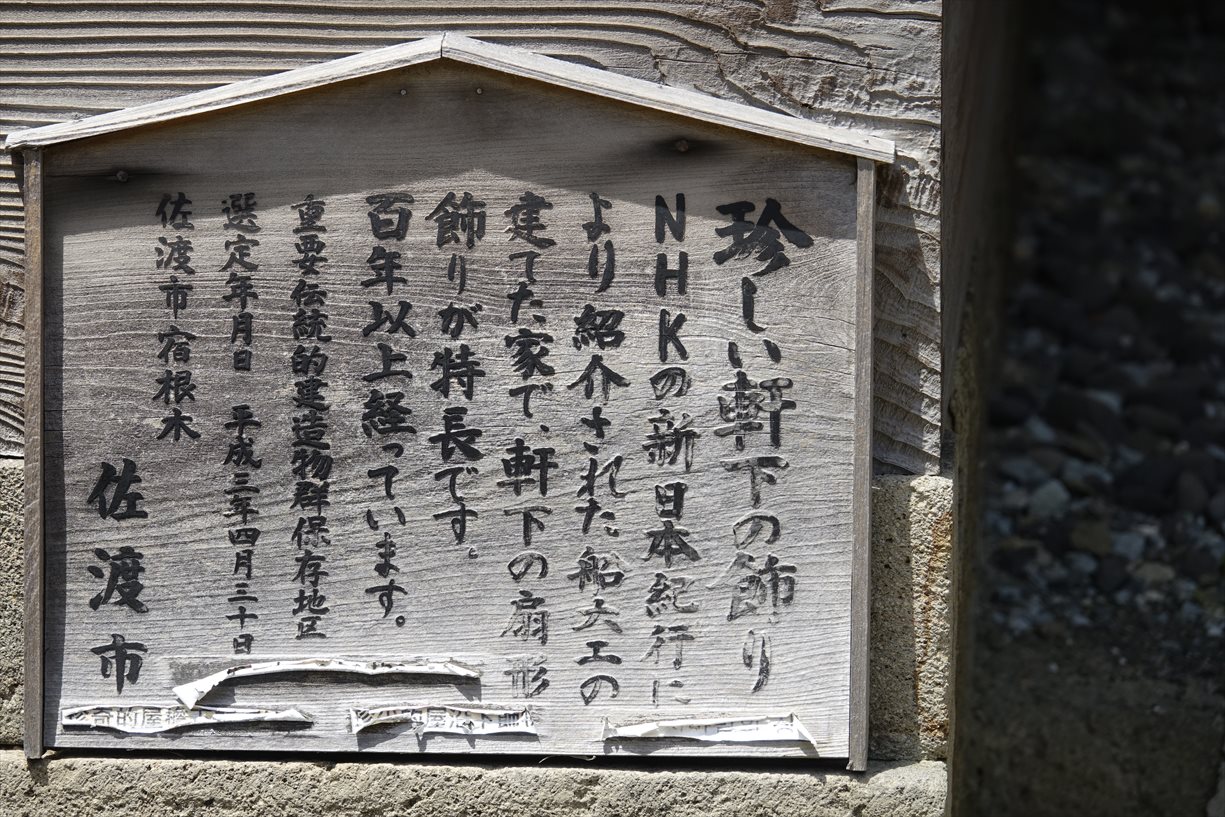 珍しい軒下の飾り
NHKの新日本紀行に
より紹介された船大工の
建てた家で、軒下の扇形
飾りが特長です。
百年以上経っています。
重要伝統的建造物群保存地区
選定年月日 平成三年四月三十日
佐渡市宿根木
佐渡市